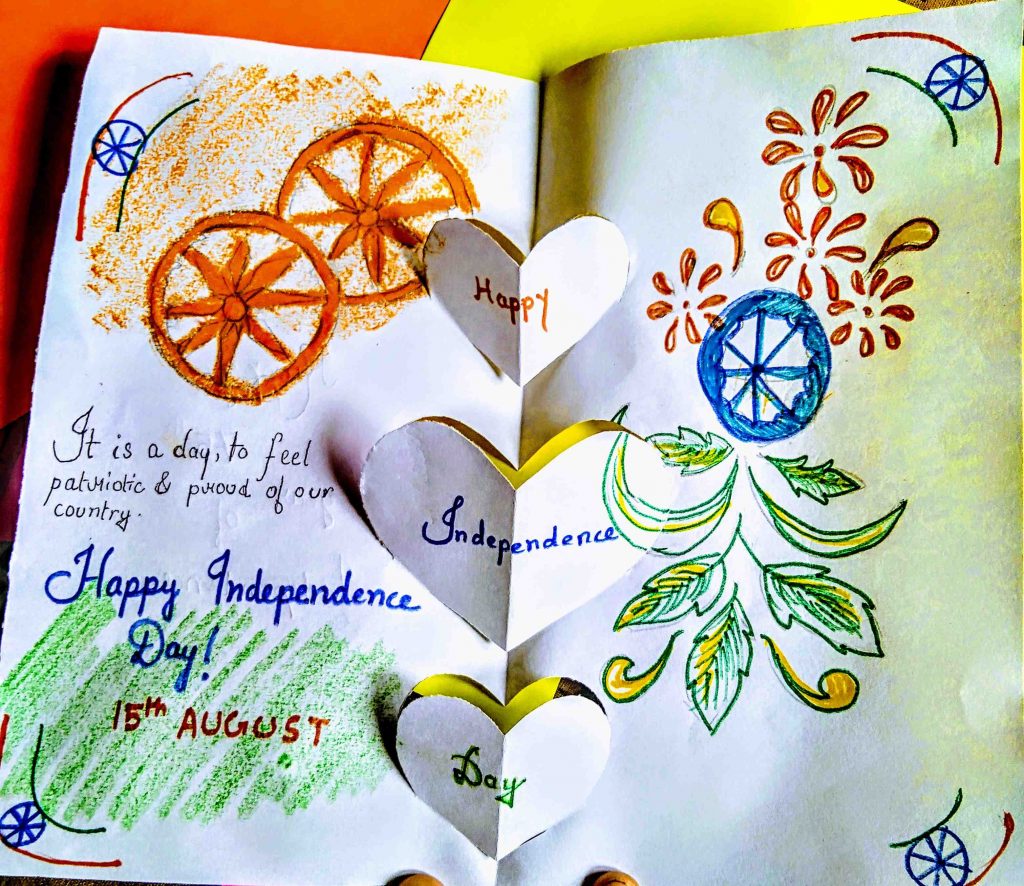 Happy
It is a day, to feel
patriotic & proud of our
country.
Independence
Happy Independence
Day!
15th AUGUST
Day